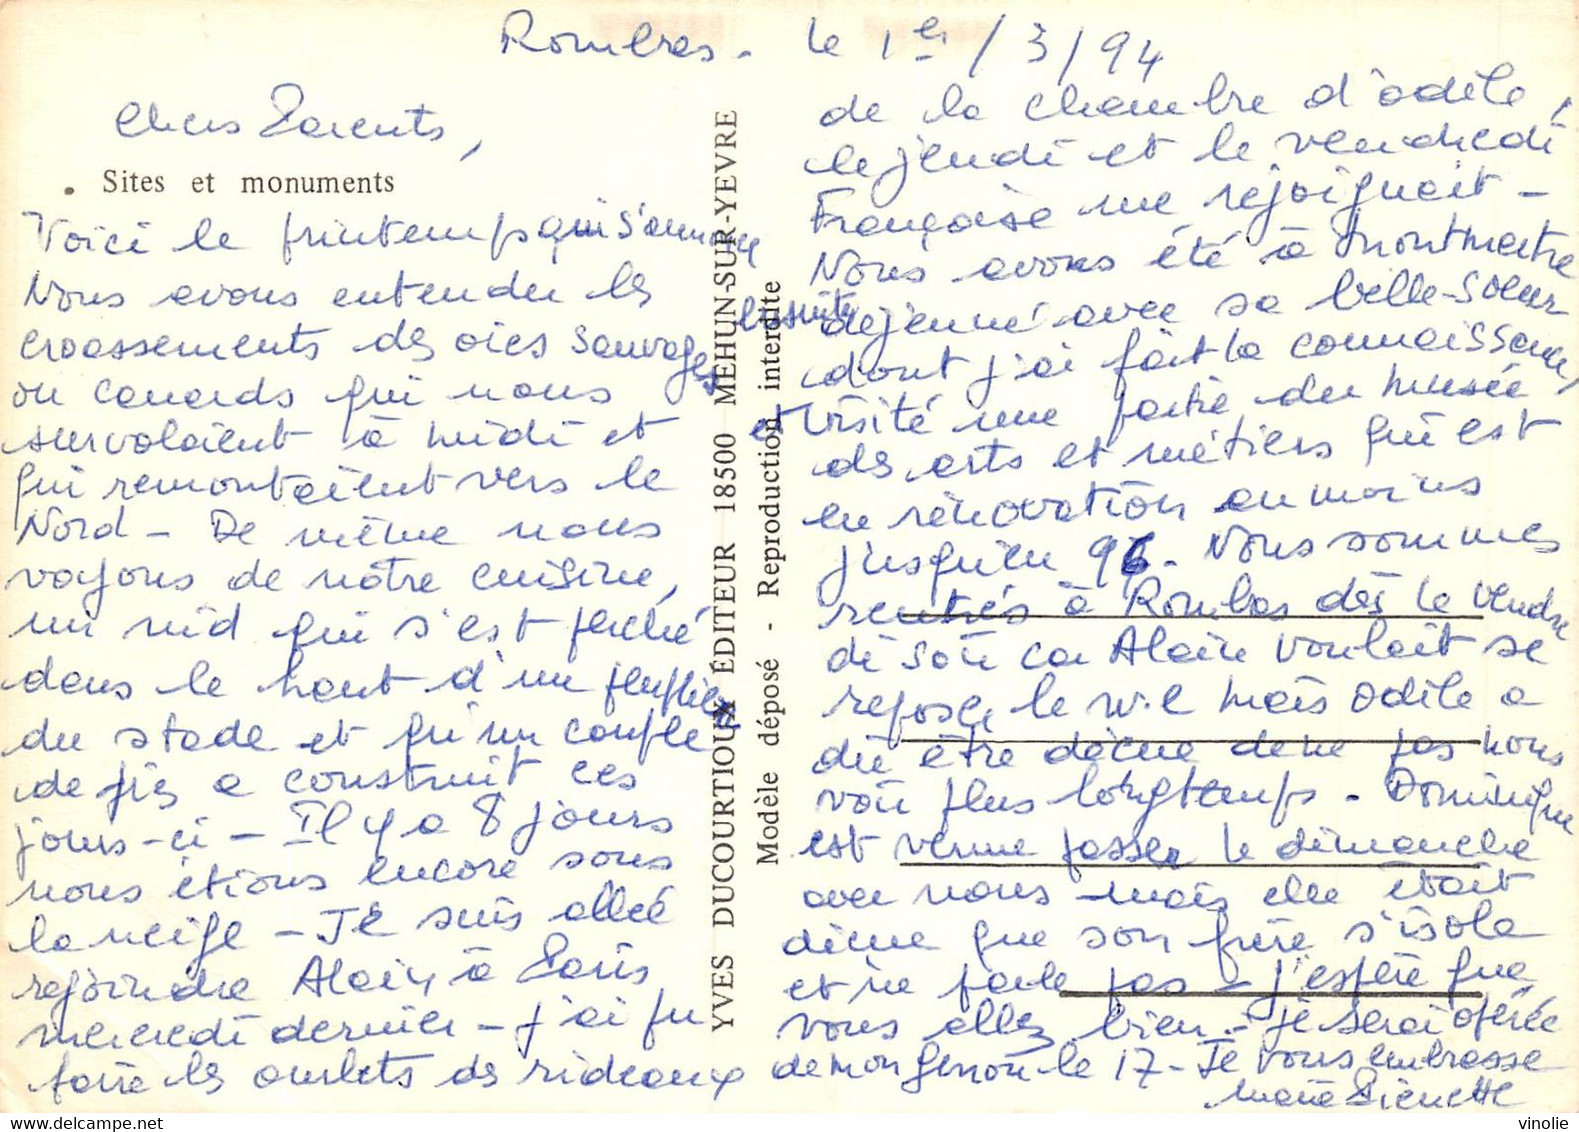 Rombas - le 1er/3/94
Chers Parents,
Sites et monuments
Voici le printemps qui s'annonce
Nous avons entendu les
croassements des oies sauvages
ou canards qui nous
survolaient à midi et
qui remontaient vers le
Nord - De même nous
voyons de notre cuisine,
un nid qui s'est perché
dans le haut d'un peuplier
du stade et qu'un couple
de pies a construit ces
jours-ci - Il y a 8 jours
nous étions encore sous
la neige - Je suis allée
rejoindre Alain à Paris
mercredi dernier - j'ai pu
faire les ourlets des rideaux
YVES DUCOURTIOUX ÉDITEUR 18500 MEHUN-SUR-YEVRE
Modèle déposé - Reproduction interdite
de la chambre d'odile,
le jeudi et le vendredi
Françoise me rejoignait -
Nous avons été à Montmartre
ensuite déjeuné avec sa belle-soeur
dont j'ai fait la connaissance,
et visité une partie du musée
des arts et métiers qui est
en rénovation au moins
jusqu'en 96. Nous sommes
rentrés à Rombas dès le vendre
di soir car Alain voulait se
reposer le w.e mais Odile a
dû être déçue de ne pas nous
voir plus longtemps - Dominique
est venue passer le dimanche
avec nous mais elle était
déçue que son frère s'isola
et ne parle pas - J'espère que
vous allez bien - Je serai opérée
de mon genou le 17 - Je vous embrasse
Marie Pierrette
vinolie